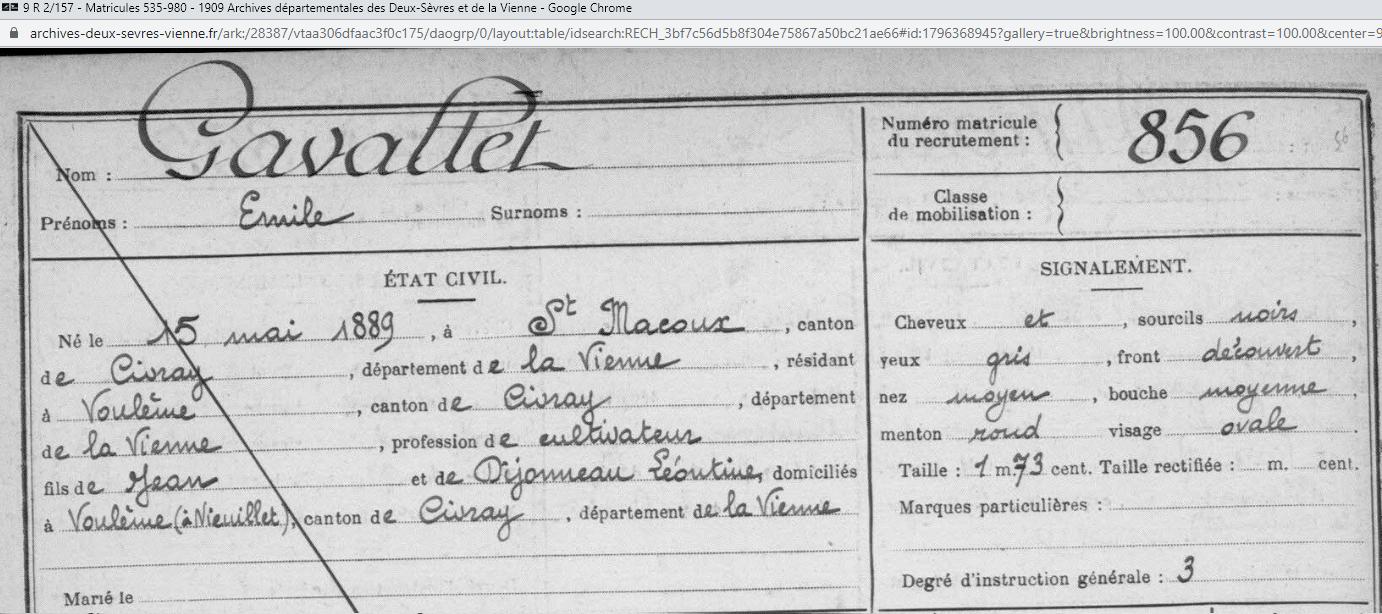 9 R 2/157 - Matricules 535-980 - 1909 Archives départementales des Deux-Sèvres et de la Vienne - Google Chrome
archives-deux-sevres-vienne.fr/ark:/28387/vtaa306dfaac3f0c175/daogrp/0/layout:table/idsearch:RECH_3bf7c56d5b8f304e75867a50bc21ae66#id:1796368945?gallery=true&brightness=100.00&contrast=100.00&center=9
Nom : Gavallet
Prénoms : Emile Surnoms :
Numéro matricule
du recrutement : 856
Classe
de mobilisation :
ÉTAT CIVIL.
Né le 15 mai 1889, à St Macoux, canton
de Civray, département de la Vienne, résidant
à Voulême, canton de Civray, département
de la Vienne, profession de cultivateur
fils de Jean et de Dijonneau Léontine, domiciliés
à Voulême (à Nieuillet), canton de Civray, département de la Vienne
Marié le
SIGNALEMENT.
Cheveux et, sourcils noirs,
yeux gris, front découvert,
nez moyen, bouche moyenne,
menton rond visage ovale.
Taille : 1 m. 73 cent. Taille rectifiée : m. cent.
Marques particulières :
Degré d'instruction générale : 3